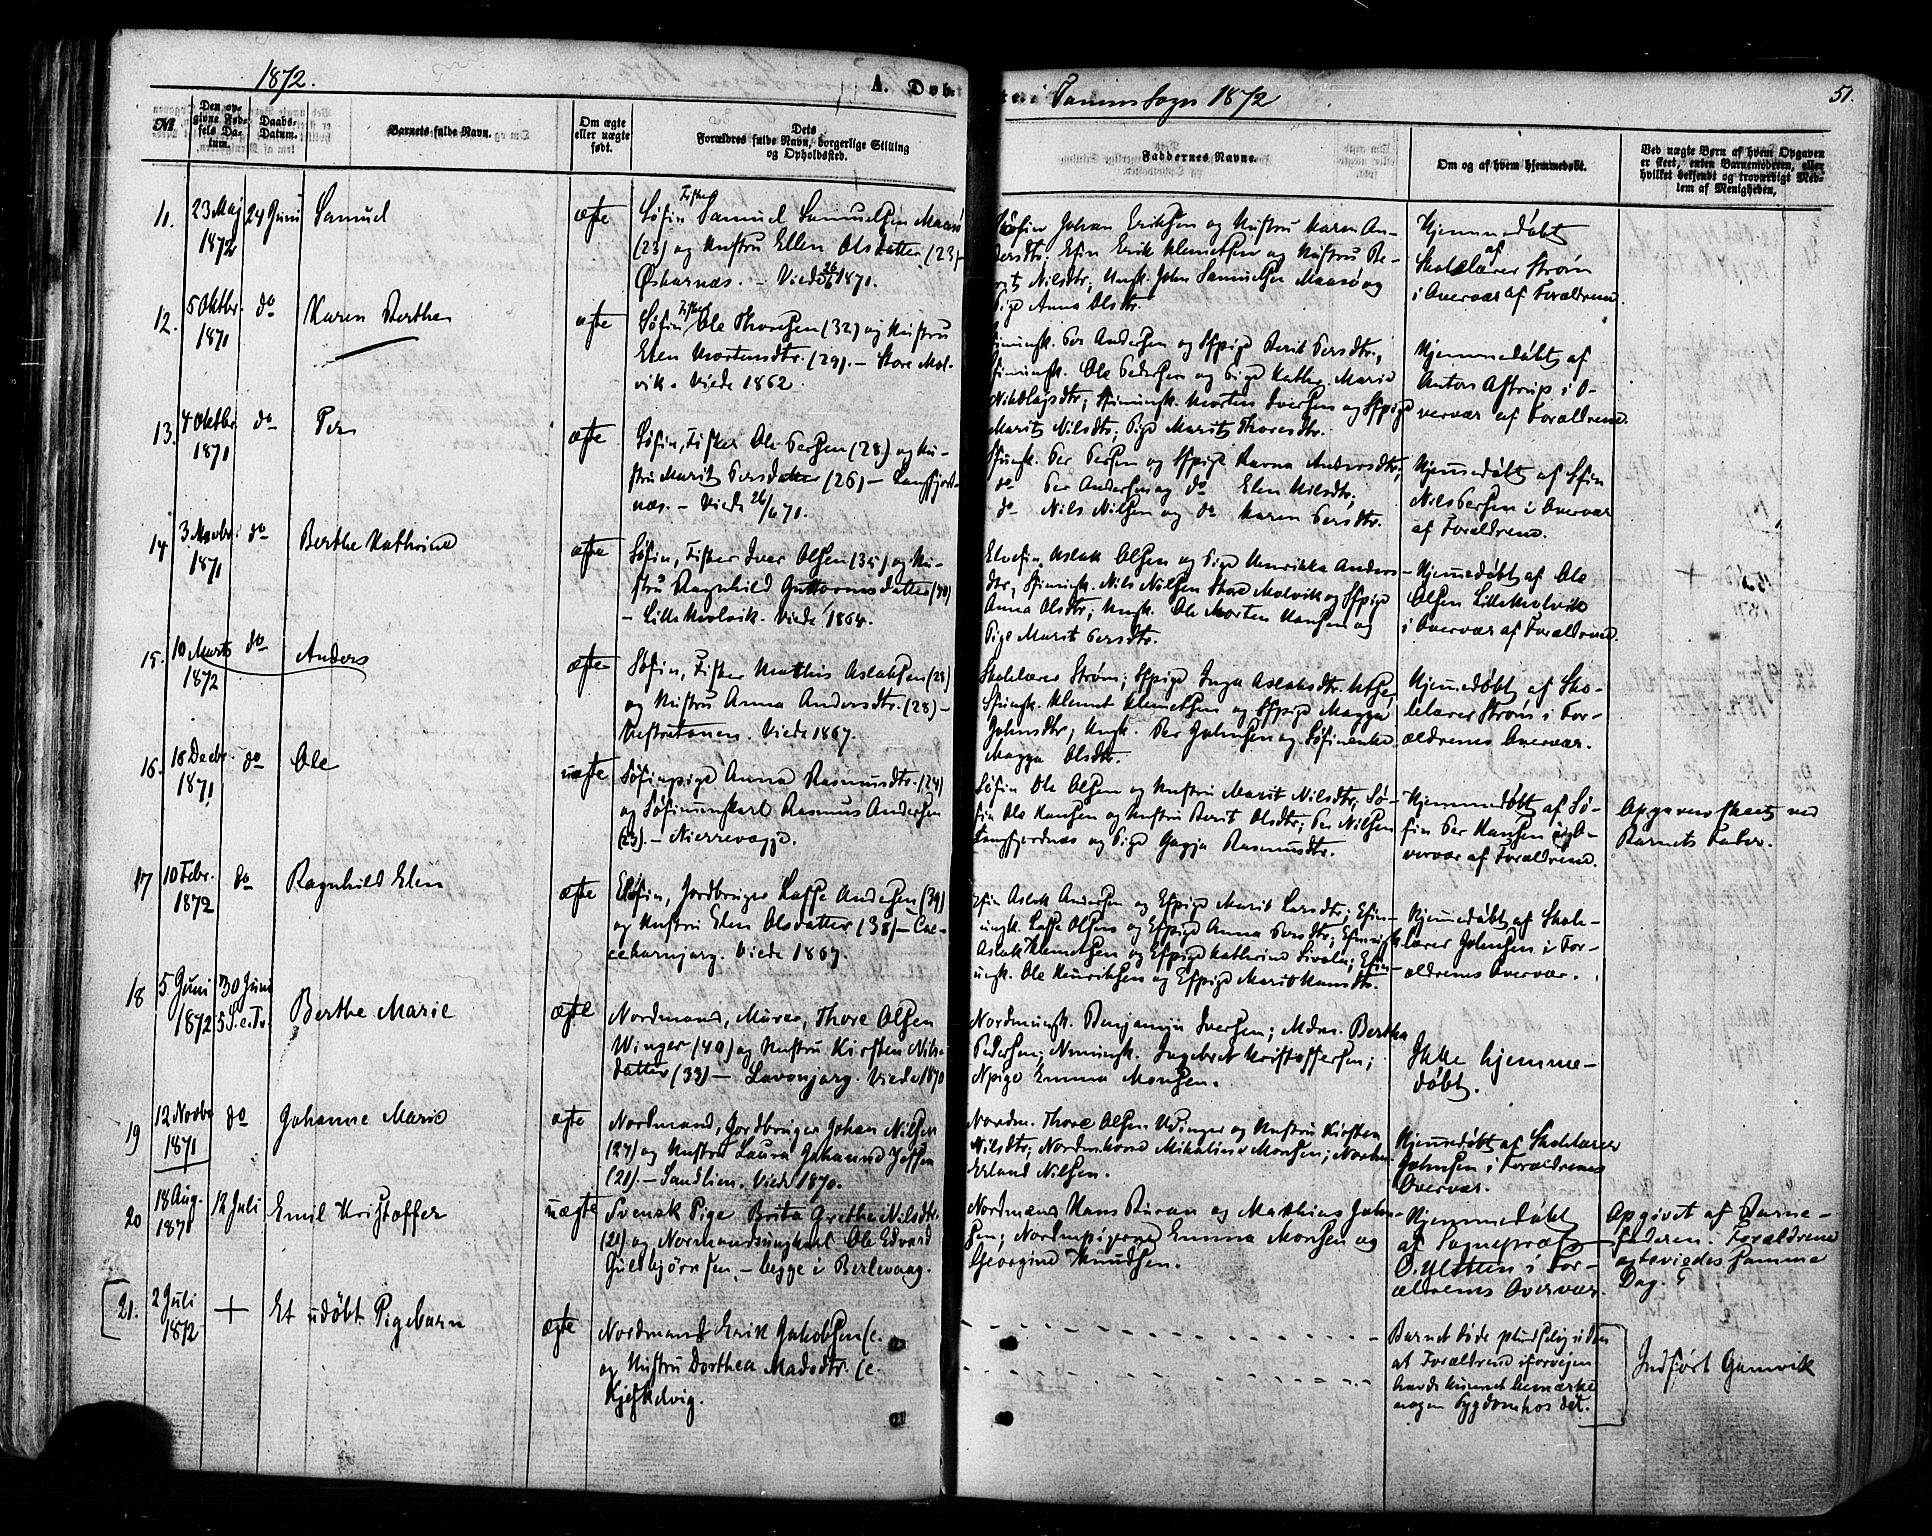 1872.
A. Døbte i Tanens Sogn 1872
51.
№
Den opgivne Fødsels Datum.
Daabs-Datum.
Barnets fulde Navn.
Om ægte eller uægte født.
Dets Forældres fulde Navn, borgerlige Stilling og Opholdssted.
Faddernes Navne.
Om og af hvem hjemmedøbt.
Ved uægte Børn af hvem Opgaven er skeet, enten Barnemoderen, eller hvilket bekjendt og troværdigt Medlem af Menigheden,
11.
23 Maj
1872
24 Juni
Samuel
ægte
Fisker
Søfin Samuel Samuelsen Maasø
(23) og Hustru Ellen Olsdatter (23)–
– Viede 26/6 1871.
Søfin Johan Eriksen og Hustru Karen An-
dersdtr; Efin Erik Klemetsen og Hustru Be-
rit Nilsdtr; Ungk. John Samuelsen Maasø og
Pige Anna Olsdtr.
Hjemmedøbt
af
Skolelærer Strøm
i Overvær af Forældrene.
12.
5 Oktbr.
1871
do
Karen Berthe
ægte
Fisker
Søfin Ole Thoresen (32) og Hustru
Elen Mortensdtr. (29). – Store Mol-
vik. Viede 1862.
Sfinungk. Per Andersen og Sfpige Berit Persdtr.,
Sfinungk. Ole Pedersen og Pige Kathr. Marie
Nikolaysdtr; Sfinungk. Morten Iversen og Sfpige
Marit Nilsdtr; Pige Marit Thoresdtr.
Hjemmedøbt af
Anton Astrup i O-
vervær af Forældrene.
13.
4 Oktbr.
1871
do
Per
ægte
Søfin, Fisker Ole Persen (28) og Hu-
stru Marit Persdatter (26) – Langfjord-
næs. – Viede 26/6 71.
Sfungk. Per Persen og Sfpige Ravna Andersdtr;
do Per Andersen og do Elen Nilsdtr;
do Nils Nilsen og do Karen Persdtr.
Hjemmedøbt af Sfin
Nils Persen i Overvær
af Forældrene.
14
3 Novbr.
1871
do
Berthe Kathrine
ægte
Søfin, Fisker Iver Olsen (35) og Hu-
stru Ragnhild Guttormsdatter (40)
– Lille Molvik. Viede 1864.
Elvefin Aslak Olsen og Pige Henrikka Anders-
dtr, Sfinungk. Nils Nilsen Store Molvik og Sfpige
Anna Olsdtr; Ungk. Ole Morten Hansen og
Pige Marit Persdtr.
Hjemmedøbt af Ole
Olsen Lille Molvik
i Overvær af Forældrene.
15.
10 Marts
1872
do
Anders
ægte
Søfin, Fisker Mathis Aslaksen (28)
og Hustru Anna Andersdtr. (28) –
Vestretanen. Viede 1867.
Skolelærer Strøm; Sfpige Inga Aslaksdtr.
Sfinungk. Klemet Klemetsen og Sfpige Magga
Johnsdtr, Ungk. Per Johnsen og Søfinenke
Magga Olsdtr.
Hjemmedøbt af Sko-
lelærer Strøm i For-
ældrenes Overvær.
16.
18 Decbr.
1871
do
Ole
uægte
Søfinpige Anna Rasmusdtr. (24)
og Søfinunkarl Rasmus Andersen
(23). – Nierrevagge.
Søfin Ole Olsen og Hustru Marit Nilsdtr, Sø-
fin Ole Hansen og Hustru Berit Olsdtr; Per Nilsen
Langfjordnæs og Pige Gagja Rasmusdtr.
Hjemmedøbt af Sø-
fin Per Hansen i O-
vervær af Forældrene.
Opgaven skeet ved
Barnets Fader.
17
10 Febr.
1872
do
Ragnhild Elen
ægte
Elvfin, Jordbruger Lasse Andersen (39)
og Hustru Elen Olsdatter (38) –
Viede 1867.
Efin Aslak Andersen og Efpige Marit Larsdtr; Efin-
ungk. Lasse Olsen og Efpige Anna Persdtr; Efinungk.
Aslak Klemetsen og Efpige Kathrine Sivola; Efin-
ungk. Ole Henriksen og Efpige Marit Hansdtr.
Hjemmedøbt af Skole-
lærer Johnsen i For-
ældrenes Overvær.
18
5 Juni
1872
30 Juni
5 S. e. Tr.
Berthe Marie
ægte
Nordmand, Murer, Thore Olsen
Winger (40) og Hustru Kirsten Nils-
datter (33) – Lavonjarg. Viede 1870
Nordmungk. Benjamin Iversen; Mdm. Bertha
Pedersen; Nmungk. Ingebret Kristoffersen;
Npige Emma Monsen.
Ikke hjemme-
døbt.
19
12 Novbr
1871
do
Johanne Marie
ægte
Nordmand, Jordbruger Johan Nilsen
(27) og Hustru Laura Johanne Jessen
(21). – Sandlien. Viede 1870.
Nordm. Thore Olsen Winger og Hustru Kirsten
Nilsdtr; Nordmkone Mikaline Monsen;
Erland Nilsen.
Hjemmedøbt af Skolelærer
Johnsen i Forældrenes
Overvær.
20
18 Aug.
1871
12 Juli
Emil Kristoffer
uægte
Svensk Pige Brita Grethe Nilsdtr.
(21) og Normandsungkarl Ole Edvard
Guldbjørnsen, – begge i Berlevaag.
Nordmand Hans Buran og Matthias John-
sen; Nordmpigerne Emma Monsen og
Georgine Knudsen.
Hjemmedøbt
af Sognepræst
O. Olsen i For-
ældrenes Overvær.
Opgivet af Barne-
faderen. Forældrene
egteviedes samme
Dag.
21.
2 Juli
1872
+
Et udøbt Pigebarn
ægte
Nordmand Erik Jakobsen
og Hustru Dorthea Madsdtr.
Kjeskevig.
Barnet døde pludselig uden
at Forældrene i forvejen
havde kunnet bemærke
nogen Sygdom hos det.
Indført Gamvik